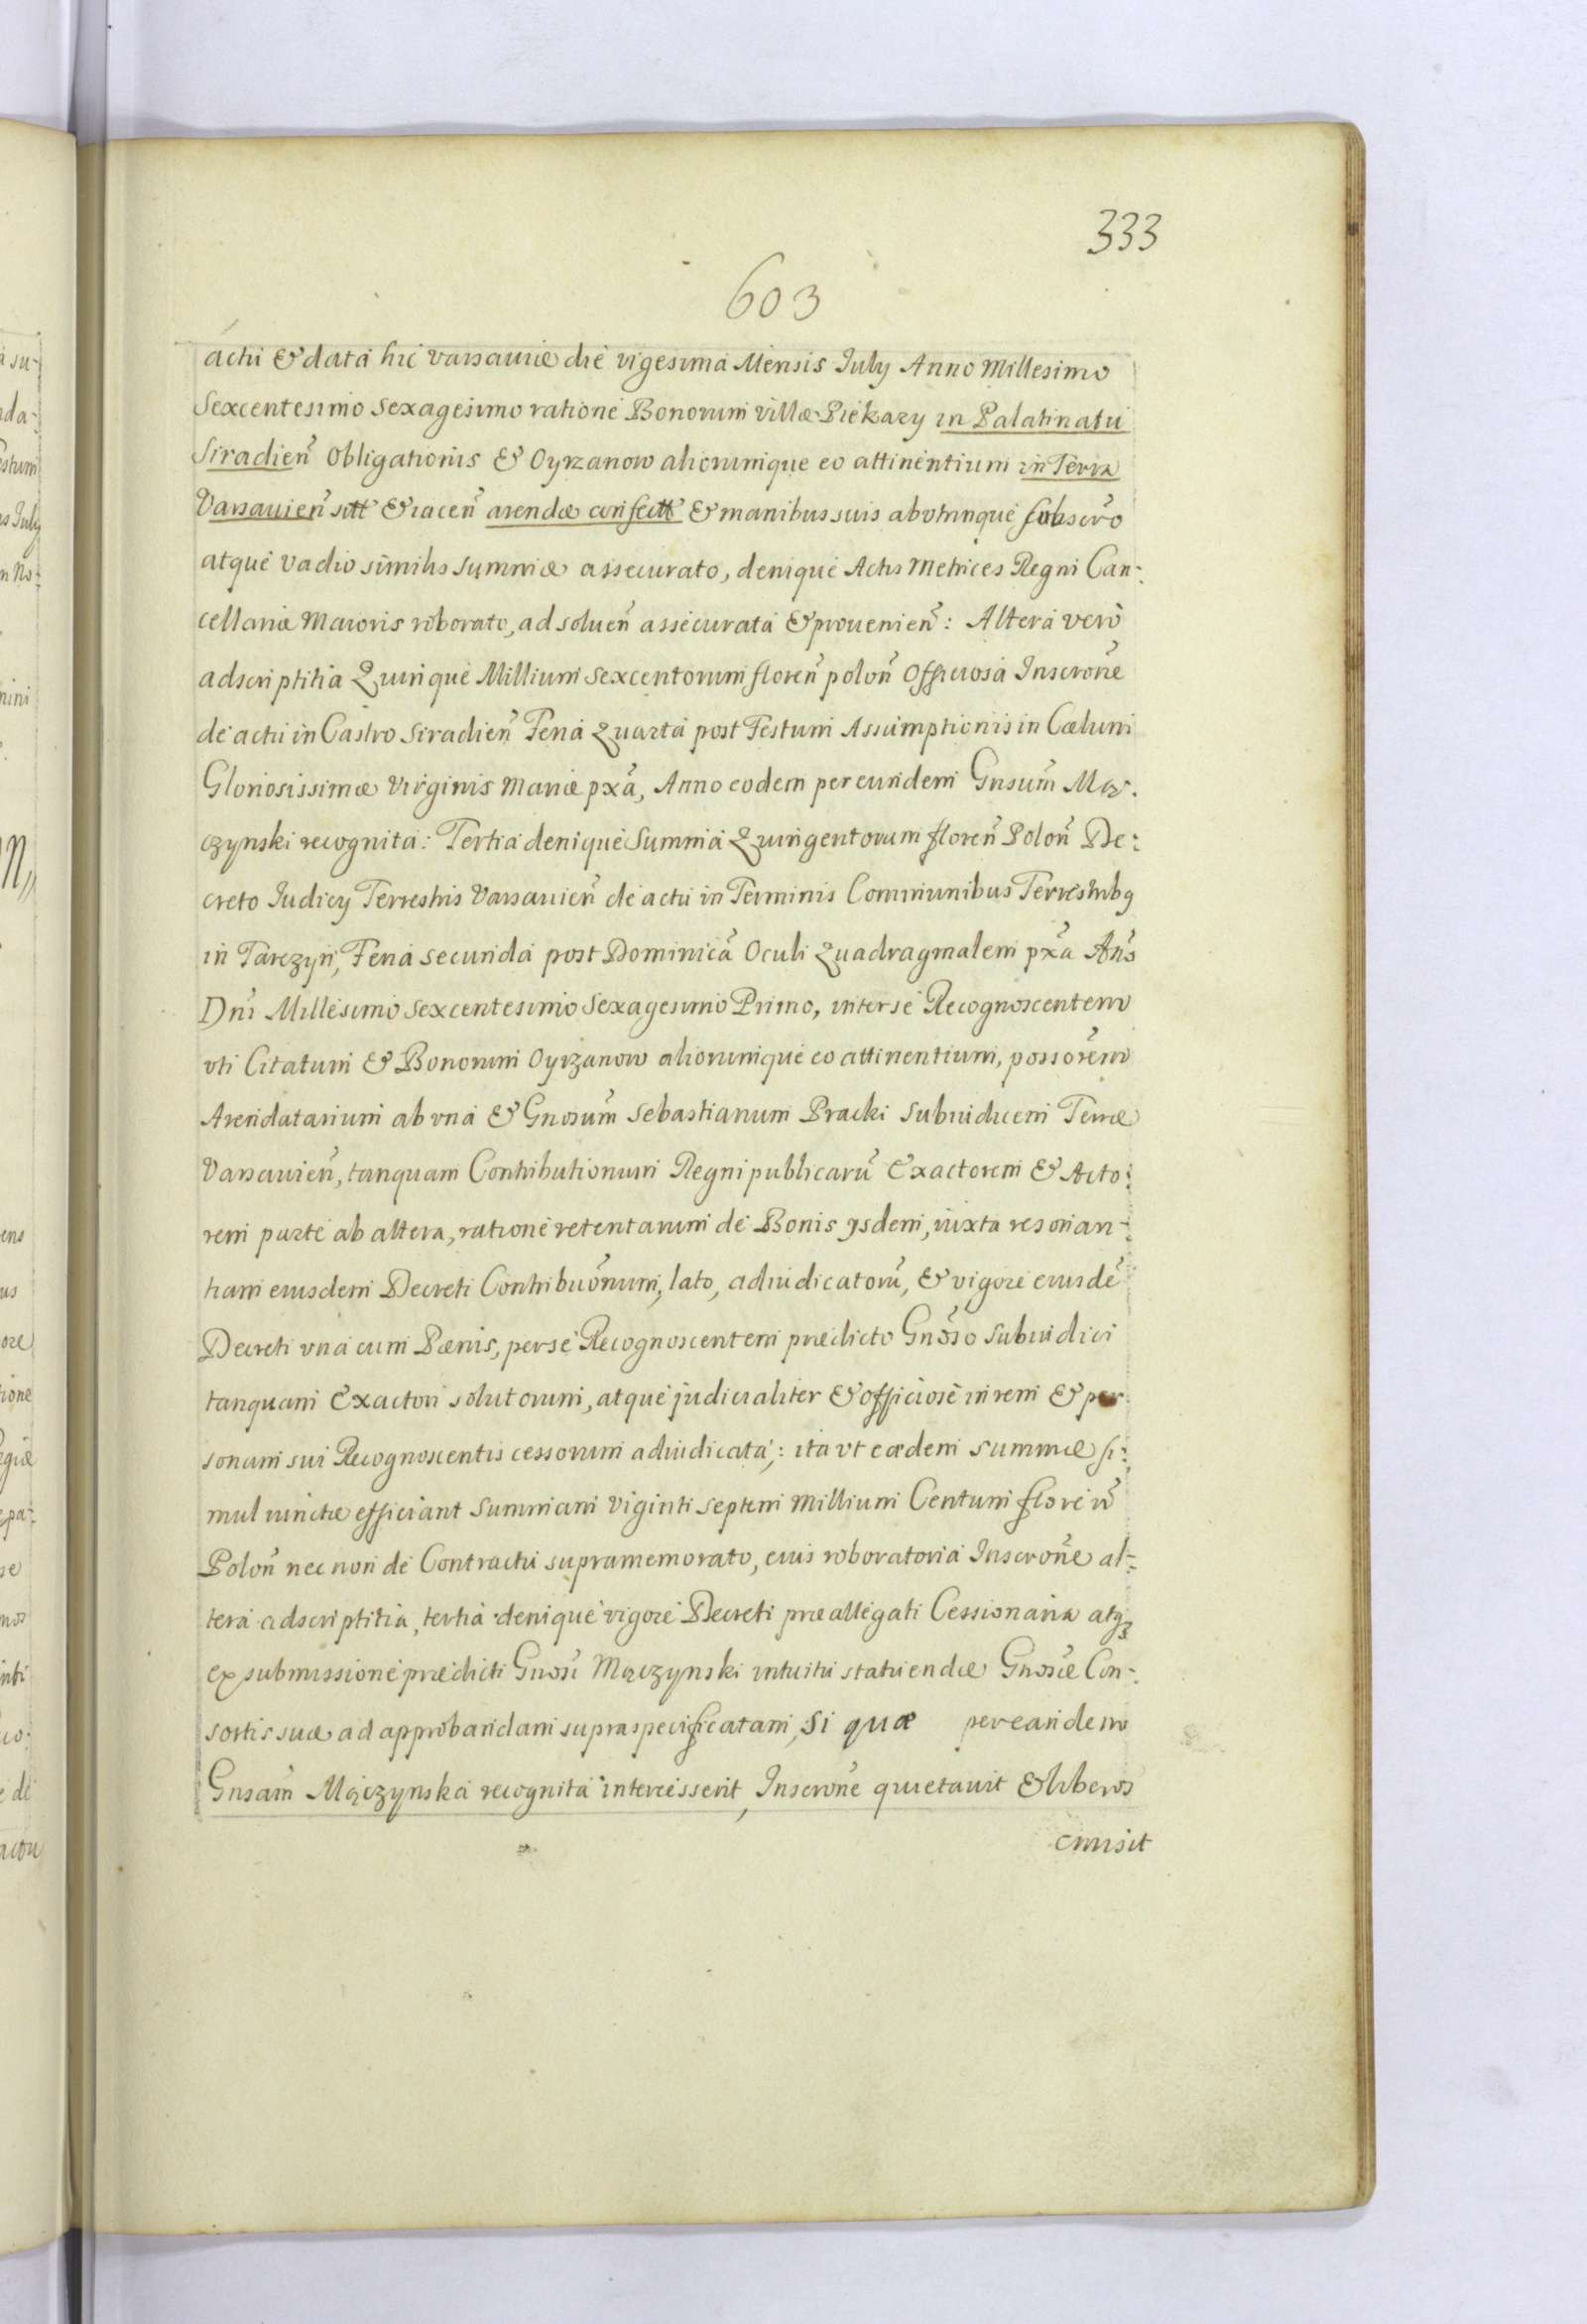 333
603
actu & data hic Varsauiæ die vigesima Mensis July Anno Millesimo
Sexcentesimo Sexagesimo ratione Bonorum villæ Piekary in Palatinatu
Siradien̄ Obligationis & Oyrzanow aliorumque eo attinentium in Terra
Varsauien̄ sitt & iacen̄ arendæ confectt & manibus suis abvtrinque subscro
atque vadio similis summæ assecurato, denique Actis Metrices Regni Can-:
cellariæ Maioris roborato, ad soluen̄ assecurata & prouenien̄: Altera verò
adscriptitia Quinque Millium Sexcentorum floren̄ polon̄ Officiosa Inscrone
de actu in Castro Siradien̄ Feria Quarta post Festum Assumptionis in Cælum
Gloriosissimæ Virginis Mariæ pxā, Anno eodem per eundem Gnsum̄ Mą.
czynski recognita: Tertia denique Summa Quingentorum floren̄ Polon̄ De:
creto Iudicy Terrestris Varsauien̄ de actu in Terminis Communibus Terrestribq
in Tarczyn, Feria secunda post Dominicā Oculi Quadragmalem pxā Ano
Dni Millesimo Sexcentesimo Sexagesimo Primo, inter se Recognoscentem
vti Citatum & Bonorum Oyrzanow aliorumque eo attinentium, possorem
Arendatarium ab vna & Gnosum̄ Sebastianum Pracki Subiudicem Terræ
Varsauien̄, tanquam Contributionum Regni publicarū Exactorem & Acto:
rem parte ab altera, ratione retentarum de Bonis ysdem, iuxta resonan-:
tiam eiusdem Decreti Contribuōnum, lato, adiudicatorū, & vigore eiusdē
Decreti vna cum Pænis, per se Recognoscentem prædicto Gnōso Subiudici
tanquam Exactori solutorum, atque judicialiter & officiose in rem & per
sonam sui Recognoscentis cessorum adiudicata,: ita vt eædem summæ si:
mul iunctæ efficiant Summam Viginti septem Millium Centum floren̄
Polon̄ nec non de Contractu supramemorato, eius roboratoria Inscrone al-:
tera adscriptitia, tertia denique vigore Decreti præallegati Cessionaria atqȝ
ex submissione prædicti Gnosi Mączynski intuitu statuendæ Gnosæ Con-:
sortis suæ ad approbandam supraspecificatam, si quæ per eandem
Gnsam̄ Mączynska recognita intercesserit, Inscrone quietauit & liberos
emisit